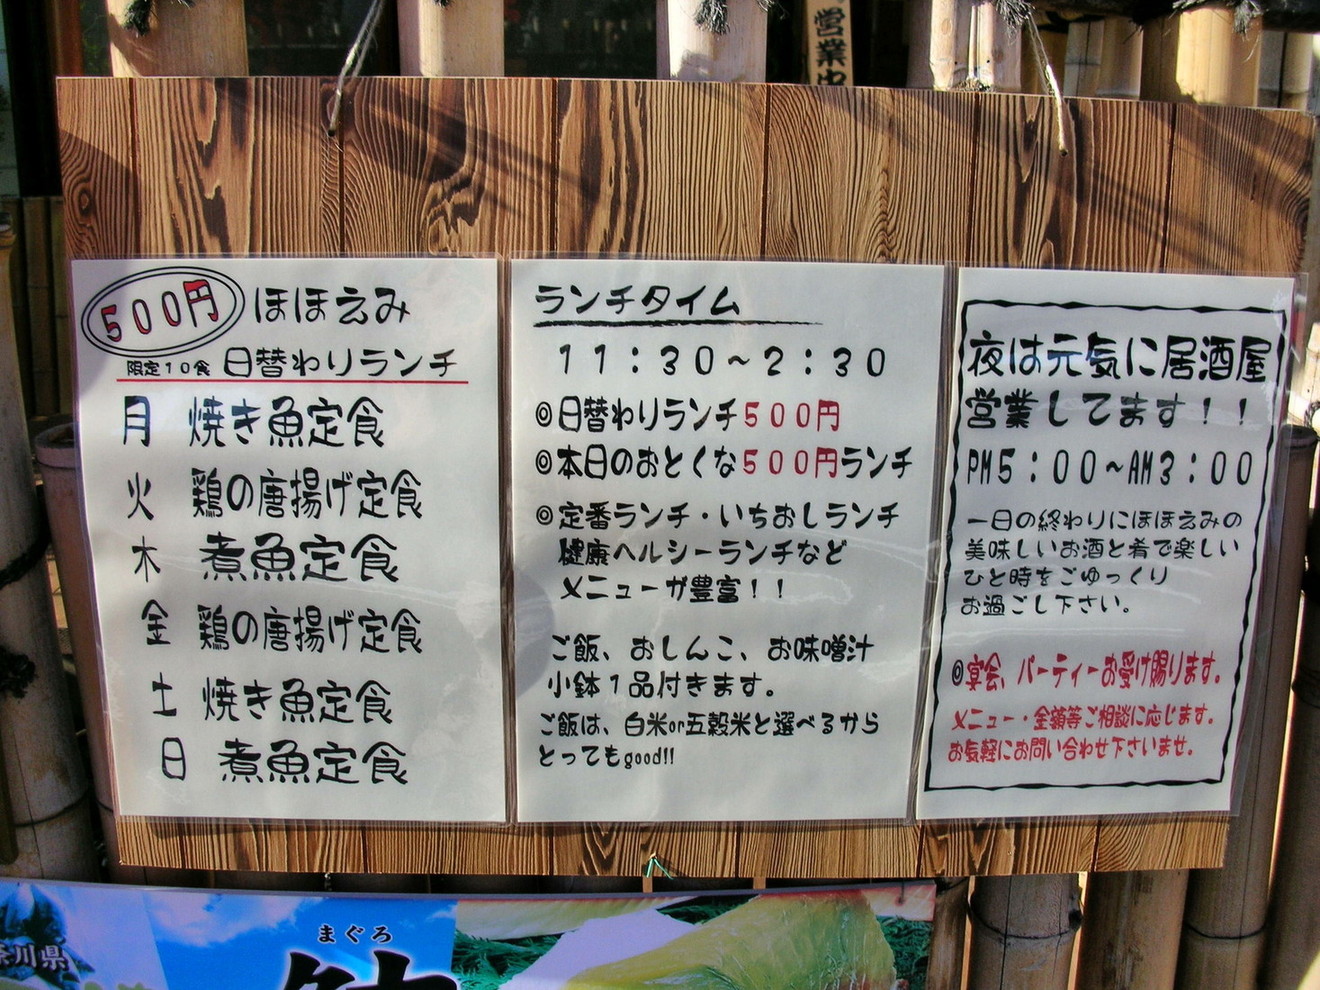 営業中
500円 ほほえみ
限定10食 日替わりランチ
月 焼き魚定食
火 鶏の唐揚げ定食
木 煮魚定食
金 鶏の唐揚げ定食
土 焼き魚定食
日 煮魚定食
ランチタイム
11:30~2:30
◎日替わりランチ500円
◎本日のおとくな500円ランチ
◎定番ランチ・いちおしランチ
健康ヘルシーランチなど
メニューが豊富!!
ご飯、おしんこ、お味噌汁
小鉢1品付きます。
ご飯は、白米or五穀米と選べるから
とってもgood!!
夜は元気に居酒屋
営業してます!!
PM5:00~AM3:00
一日の終わりにほほえみの
美味しいお酒と肴で楽しい
ひと時をごゆっくり
お過ごし下さい。
◎宴会、パーティーお受け賜ります。
メニュー・金額等ご相談に応じます。
お気軽にお問い合わせ下さいませ。
奈川県
まぐろ